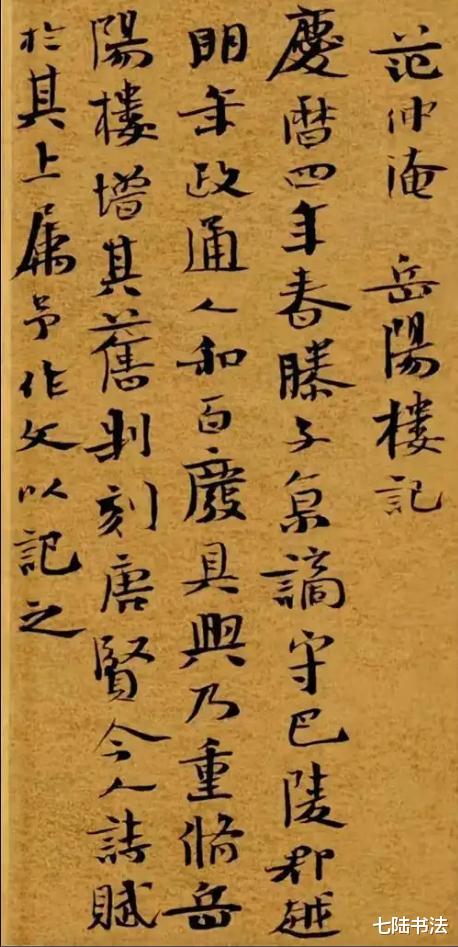 范仲淹 岳陽樓記
慶曆四年春滕子京謫守巴陵郡越
明年政通人和百廢具興乃重脩岳
陽樓增其舊制刻唐賢今人詩賦
於其上屬予作文以記之
七陆书法